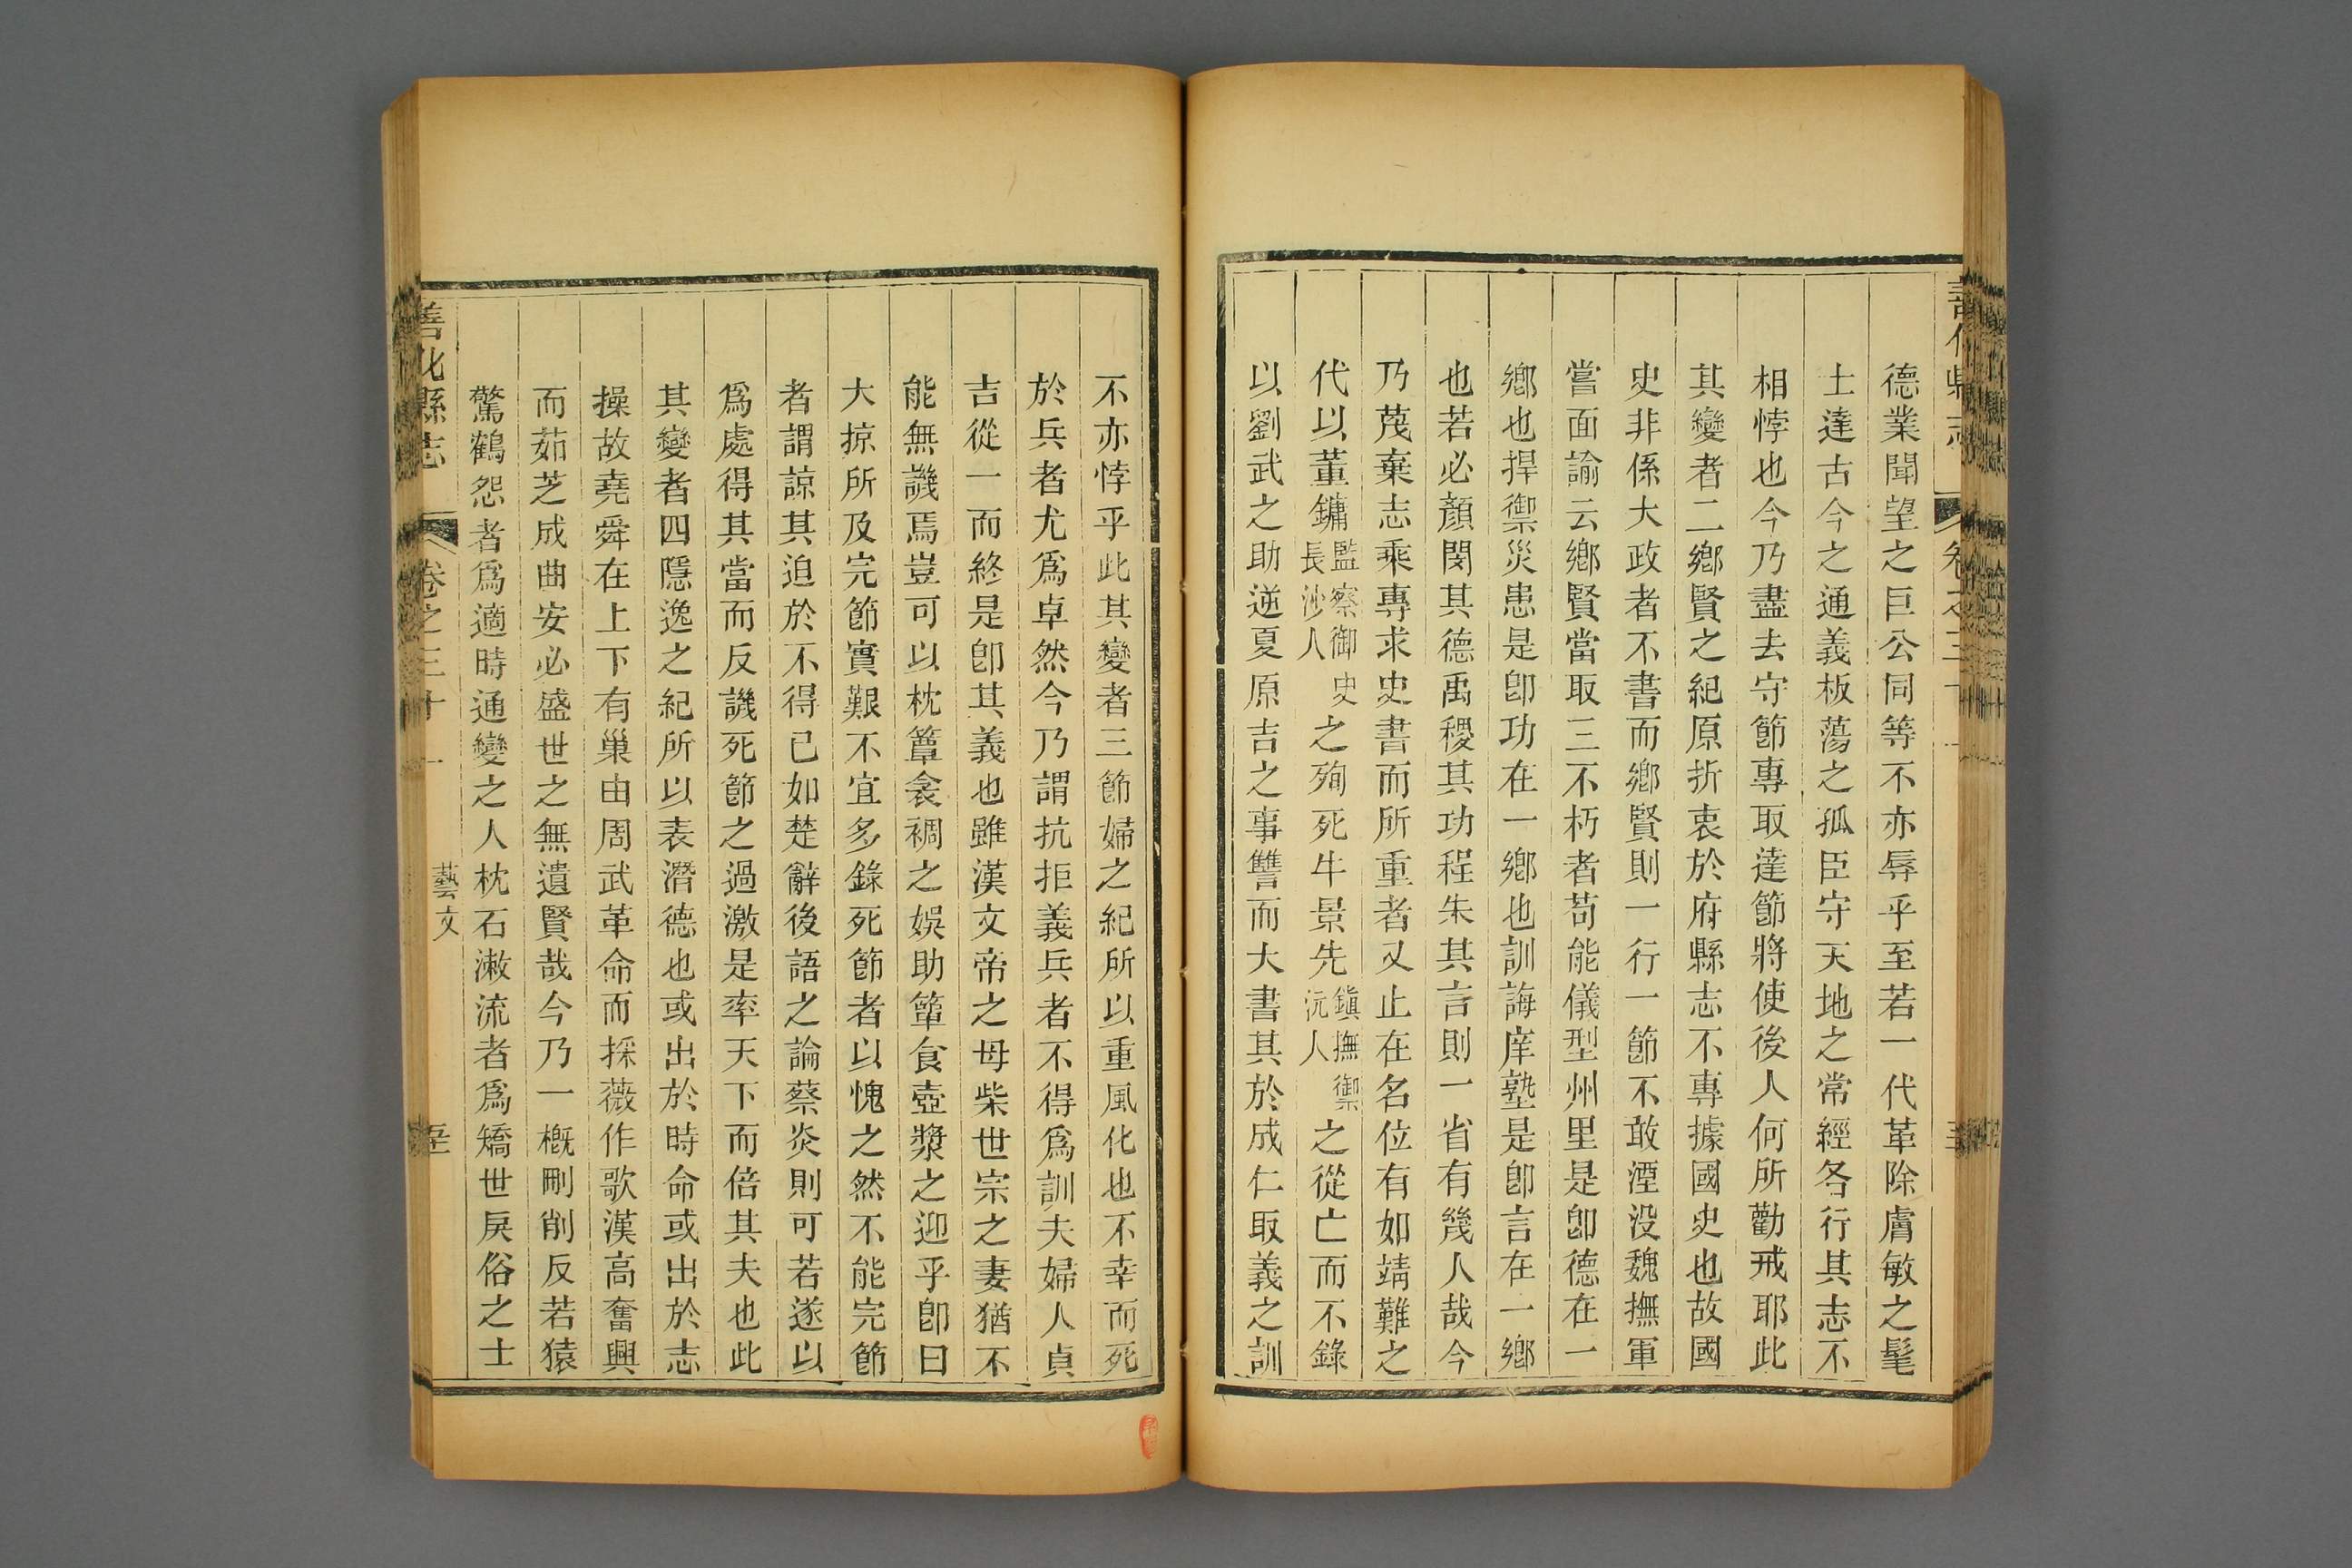 德業聞望之巨公同等不亦辱乎至若一代革除膚敏之髦
士達古今之通義板蕩之孤臣守天地之常經各行其志不
相悖也今乃盡去守節專取達節將使後人何所勸戒耶此
其變者二鄉賢之紀原折衷於府縣志不專據國史也故國
史非係大政者不書而鄉賢則一行一節不敢湮没魏撫軍
嘗面諭云鄉賢當取三不朽者苟能儀型州里是卽德在一
鄉也捍禦災患是卽功在一鄉也訓誨庠塾是卽言在一鄉
也若必顏閔其德禹稷其功程朱其言則一省有幾人哉今
乃蔑棄志乘專求史書而所重者又止在名位有如靖難之
代以董鏞監察御史長沙人之殉死牛景先鎭撫禦沅人之從亡而不錄
以劉武之助逆夏原吉之事讐而大書其於成仁取義之訓
不亦悖乎此其變者三節婦之紀所以重風化也不幸而死
於兵者尤爲卓然今乃謂抗拒義兵者不得爲訓夫婦人貞
吉從一而終是卽其義也雖漢文帝之母柴世宗之妻猶不
能無譏焉豈可以枕簟衾裯之娛助簞食壺漿之迎乎卽曰
大掠所及完節實艱不宜多錄死節者以愧之然不能完節
者謂諒其迫於不得已如楚辭後語之論蔡炎則可若遂以
爲處得其當而反譏死節之過激是率天下而倍其夫也此
其變者四隱逸之紀所以表潛德也或出於時命或出於志
操故堯舜在上下有巢由周武革命而採薇作歌漢高奮興
而茹芝成曲安必盛世之無遺賢哉今乃一槪刪削反若猿
驚鶴怨者爲適時通變之人枕石漱流者爲矯世戾俗之士
善化縣志 卷之三十一 藝文